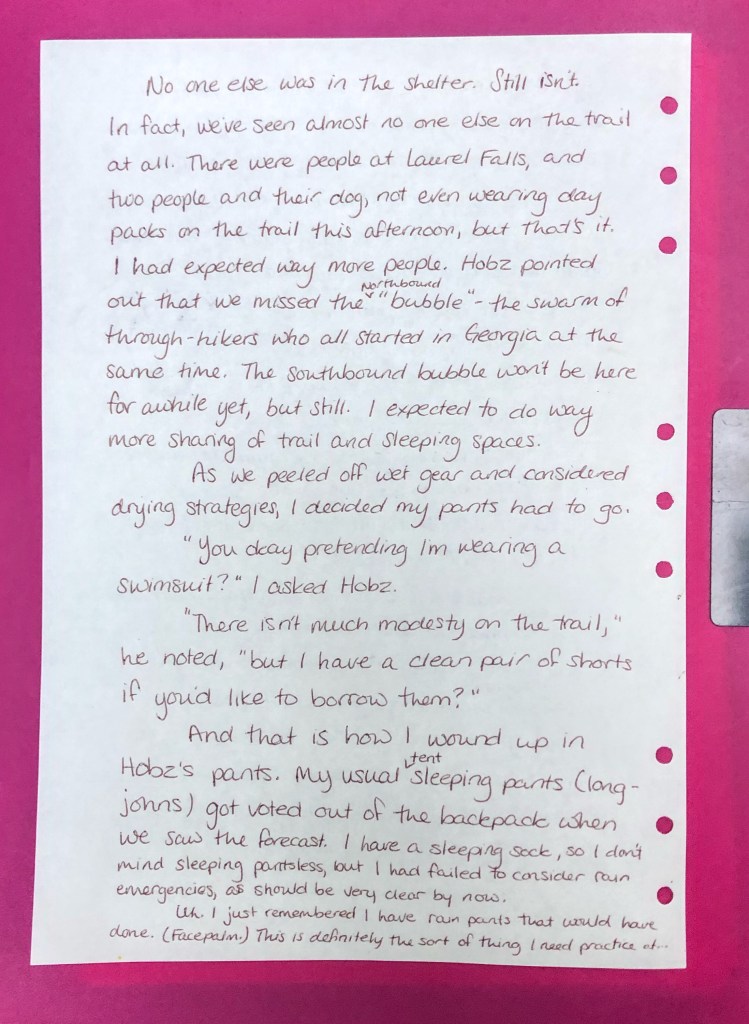 No one else was in the shelter. Still isn't.
In fact, we've seen almost no one else on the trail
at all. There were people at Laurel Falls, and
two people and their dog, not even wearing day
packs on the trail this afternoon, but that's it.
I had expected way more people. Hobz pointed
out that we missed the Northbound "bubble" - the swarm of
through-hikers who all started in Georgia at the
same time. The southbound bubble won't be here
for awhile yet, but still. I expected to do way
more sharing of trail and sleeping spaces.
As we peeled off wet gear and considered
drying strategies, I decided my pants had to go.
"You okay pretending I'm wearing a
swimsuit?" I asked Hobz.
"There isn't much modesty on the trail,"
he noted, "but I have a clean pair of shorts
if you'd like to borrow them?"
And that is how I wound up in
Hobz's pants. My usual tent sleeping pants (long-
johns) got voted out of the backpack when
we saw the forecast. I have a sleeping sack, so I don't
mind sleeping pantsless, but I had failed to consider rain
emergencies, as should be very clear by now.
Uh. I just remembered I have rain pants that would have
done. (Facepalm.) This is definitely the sort of thing I need practice at...